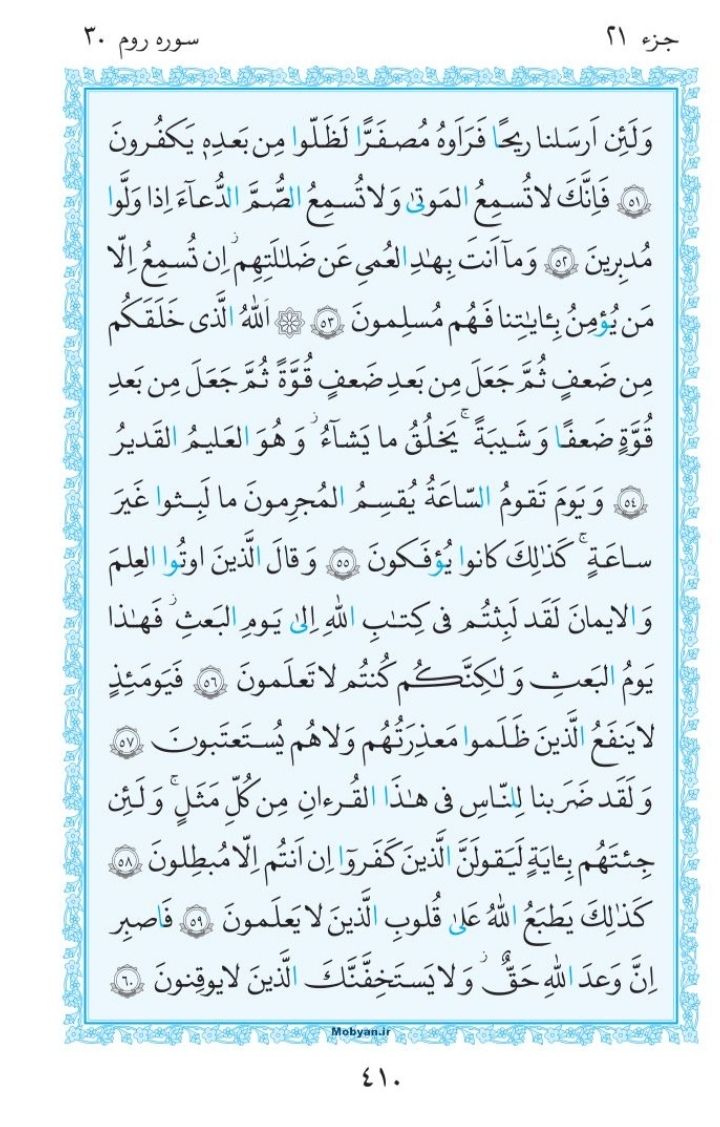 جزء ۲۱
سوره روم ۳۰
وَلَئِن اَرسَلنا ريحًا فَرَاَوهُ مُصفَرًّا لَظَلّوا مِن بَعدِهٖ يَكفُرونَ
﴿٥١﴾ فَاِنَّكَ لاتُسمِعُ المَوتىٰ وَلاتُسمِعُ الصُّمَّ الدُّعاۤءَ اِذا وَلَّوا
مُدبِرينَ ﴿٥٢﴾ وَماۤ اَنتَ بِهٰدِ العُمىِ عَن ضَلٰلَتِهِمۖ اِن تُسمِعُ اِلّا
مَن يُؤمِنُ بِـٔايٰتِنا فَهُم مُسلِمونَ ﴿٥٣﴾ ۞ اَللهُ الَّذى خَلَقَكُم
مِن ضَعفٍ ثُمَّ جَعَلَ مِن بَعدِ ضَعفٍ قُوَّةً ثُمَّ جَعَلَ مِن بَعدِ
قُوَّةٍ ضَعفًا وَشَيبَةًۚ يَخلُقُ ما يَشاۤءُۖ وَهُوَ العَليمُ القَديرُ
﴿٥٤﴾ وَيَومَ تَقومُ السّاعَةُ يُقسِمُ المُجرِمونَ ما لَبِثوا غَيرَ
ساعَةٍۚ كَذٰلِكَ كانوا يُؤفَكونَ ﴿٥٥﴾ وَقالَ الَّذينَ اوتُوا العِلمَ
وَالايمانَ لَقَد لَبِثتُم فى كِتٰبِ اللهِ اِلىٰ يَومِ البَعثِۖ فَهٰذا
يَومُ البَعثِ وَلٰكِنَّكُم كُنتُم لاتَعلَمونَ ﴿٥٦﴾ فَيَومَئِذٍ
لايَنفَعُ الَّذينَ ظَلَموا مَعذِرَتُهُم وَلاهُم يُستَعتَبونَ ﴿٥٧﴾
وَلَقَد ضَرَبنا لِلنّاسِ فى هٰذَا القُرءانِ مِن كُلِّ مَثَلٍۚ وَلَئِن
جِئتَهُم بِـٔايَةٍ لَيَقولَنَّ الَّذينَ كَفَروۤا اِن اَنتُم اِلّا مُبطِلونَ ﴿٥٨﴾
كَذٰلِكَ يَطبَعُ اللهُ عَلىٰ قُلوبِ الَّذينَ لايَعلَمونَ ﴿٥٩﴾ فَاصبِر
اِنَّ وَعدَ اللهِ حَقٌّۖ وَلايَستَخِفَّنَّكَ الَّذينَ لايوقِنونَ ﴿٦٠﴾
Mobyan.ir
٤١٠